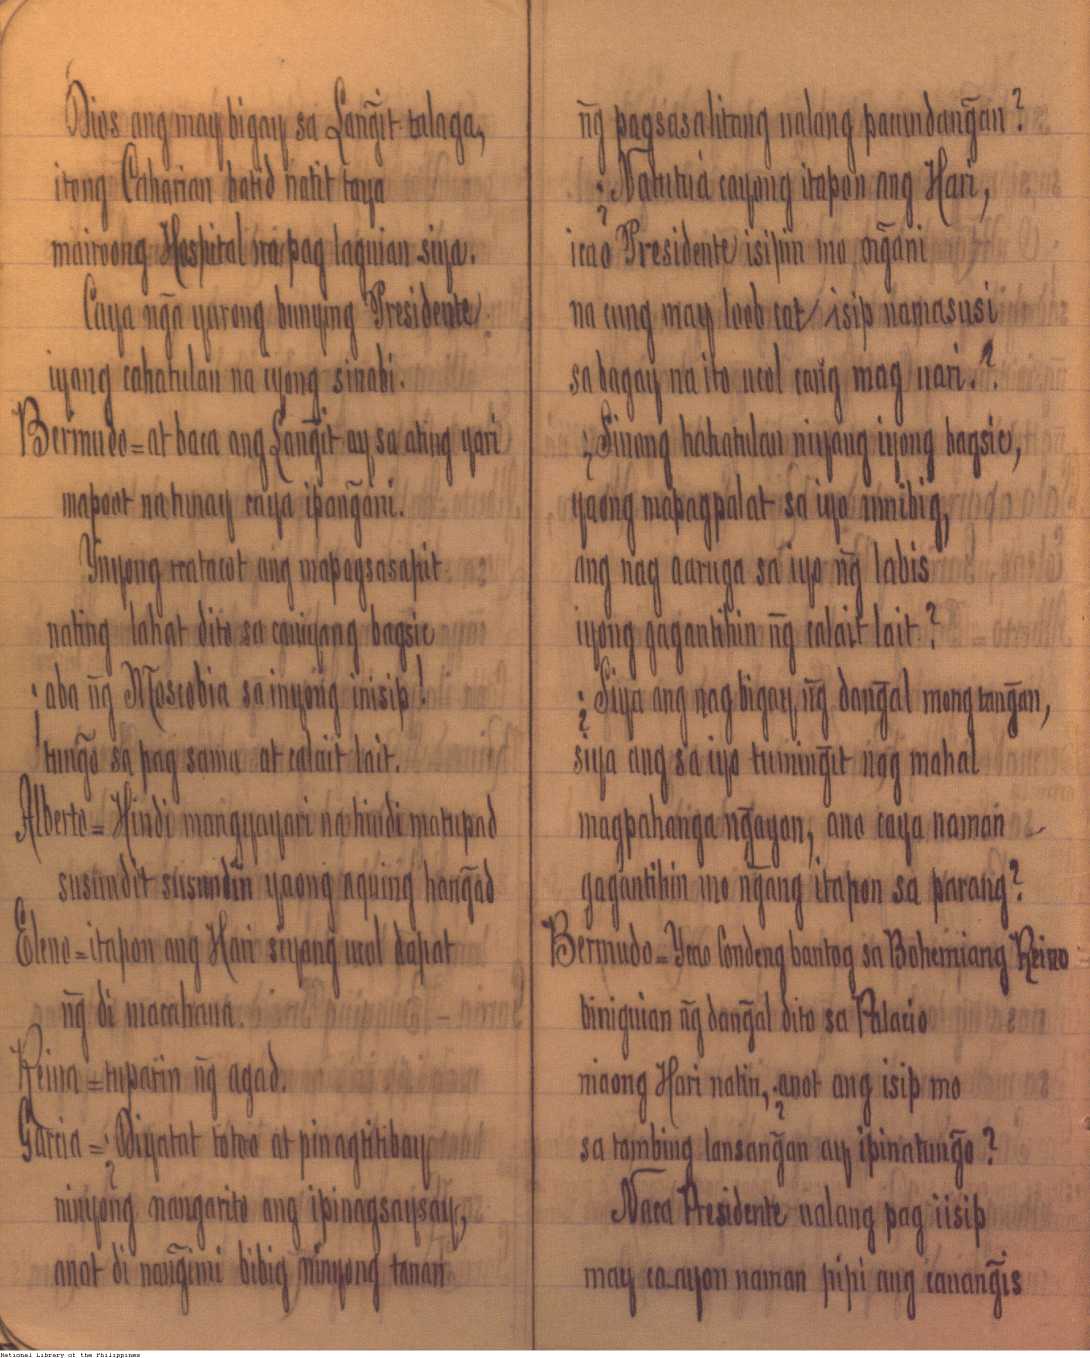 Dios ang may bigay sa Lañgit talaga,
itong Caharian batid natit taya
mairoong Hospital na pag laguian siya.
Caya ng̃a yarong bunying Presidente
iyang cahatulan na iyong sinabi.
Bermudo = at baca ang Lang̃it ay sa ating yari
mapoot na tunay caya ipang̃ani.
Ynyong matacot ang mapagsasapit
nating lahat dito sa caniyang bagsic
¡aba ng̃ Moscobia sa inyong inisip!
tung̃o sa pag sama at calait lait.
Alberto = Hindi mangyayari na hindi matupad
susundit susundin yaong aquing hang̃ad
Eleno = itapon ang Hari siyang ucol dapat
ng̃ di macahana.
Reina = tuparin ng̃ agad.
Garcia = ¿Diyatat totoo at pinagtitibay
ninyong nangarito ang ipinagsaysay,
anat di nang̃imi bibig ninyong tanan
ng̃ pagsasalitang ualang pacundang̃an?
¿Natutuá cayong itapon ang Hari,
icao Presidente isipin mo ng̃ani
na cung may loob cat isip namasusi
sa bagay na ito ucol cang mag uari.?
¿Sinong hahatulan niyang iyong bagsic,
yaong mapagpalat sa iyo inibig,
ang nag aaruga sa iyo ng̃ labis
iyong gagantihin ng̃ calait lait?
¿Siya ang nag bigay ng̃ dang̃al mong tang̃an,
siya ang sa iyo tuming̃it nag mahal
magpahanga ng̃ayon, ano caya naman
gagantihin mo ng̃ang itapon sa parang?
Bermudo = Ycao Condeng bantog sa Bohemiang Reino
biniguian ng̃ dang̃al dito sa Palacio
niaong Hari natin, ¿anot ang isip mo
sa tambing lansang̃an ay ipinatung̃o?
Naca Presidente ualang pag iisip
may ca ayon naman pipi ang canang̃is
National Library of the Philippines